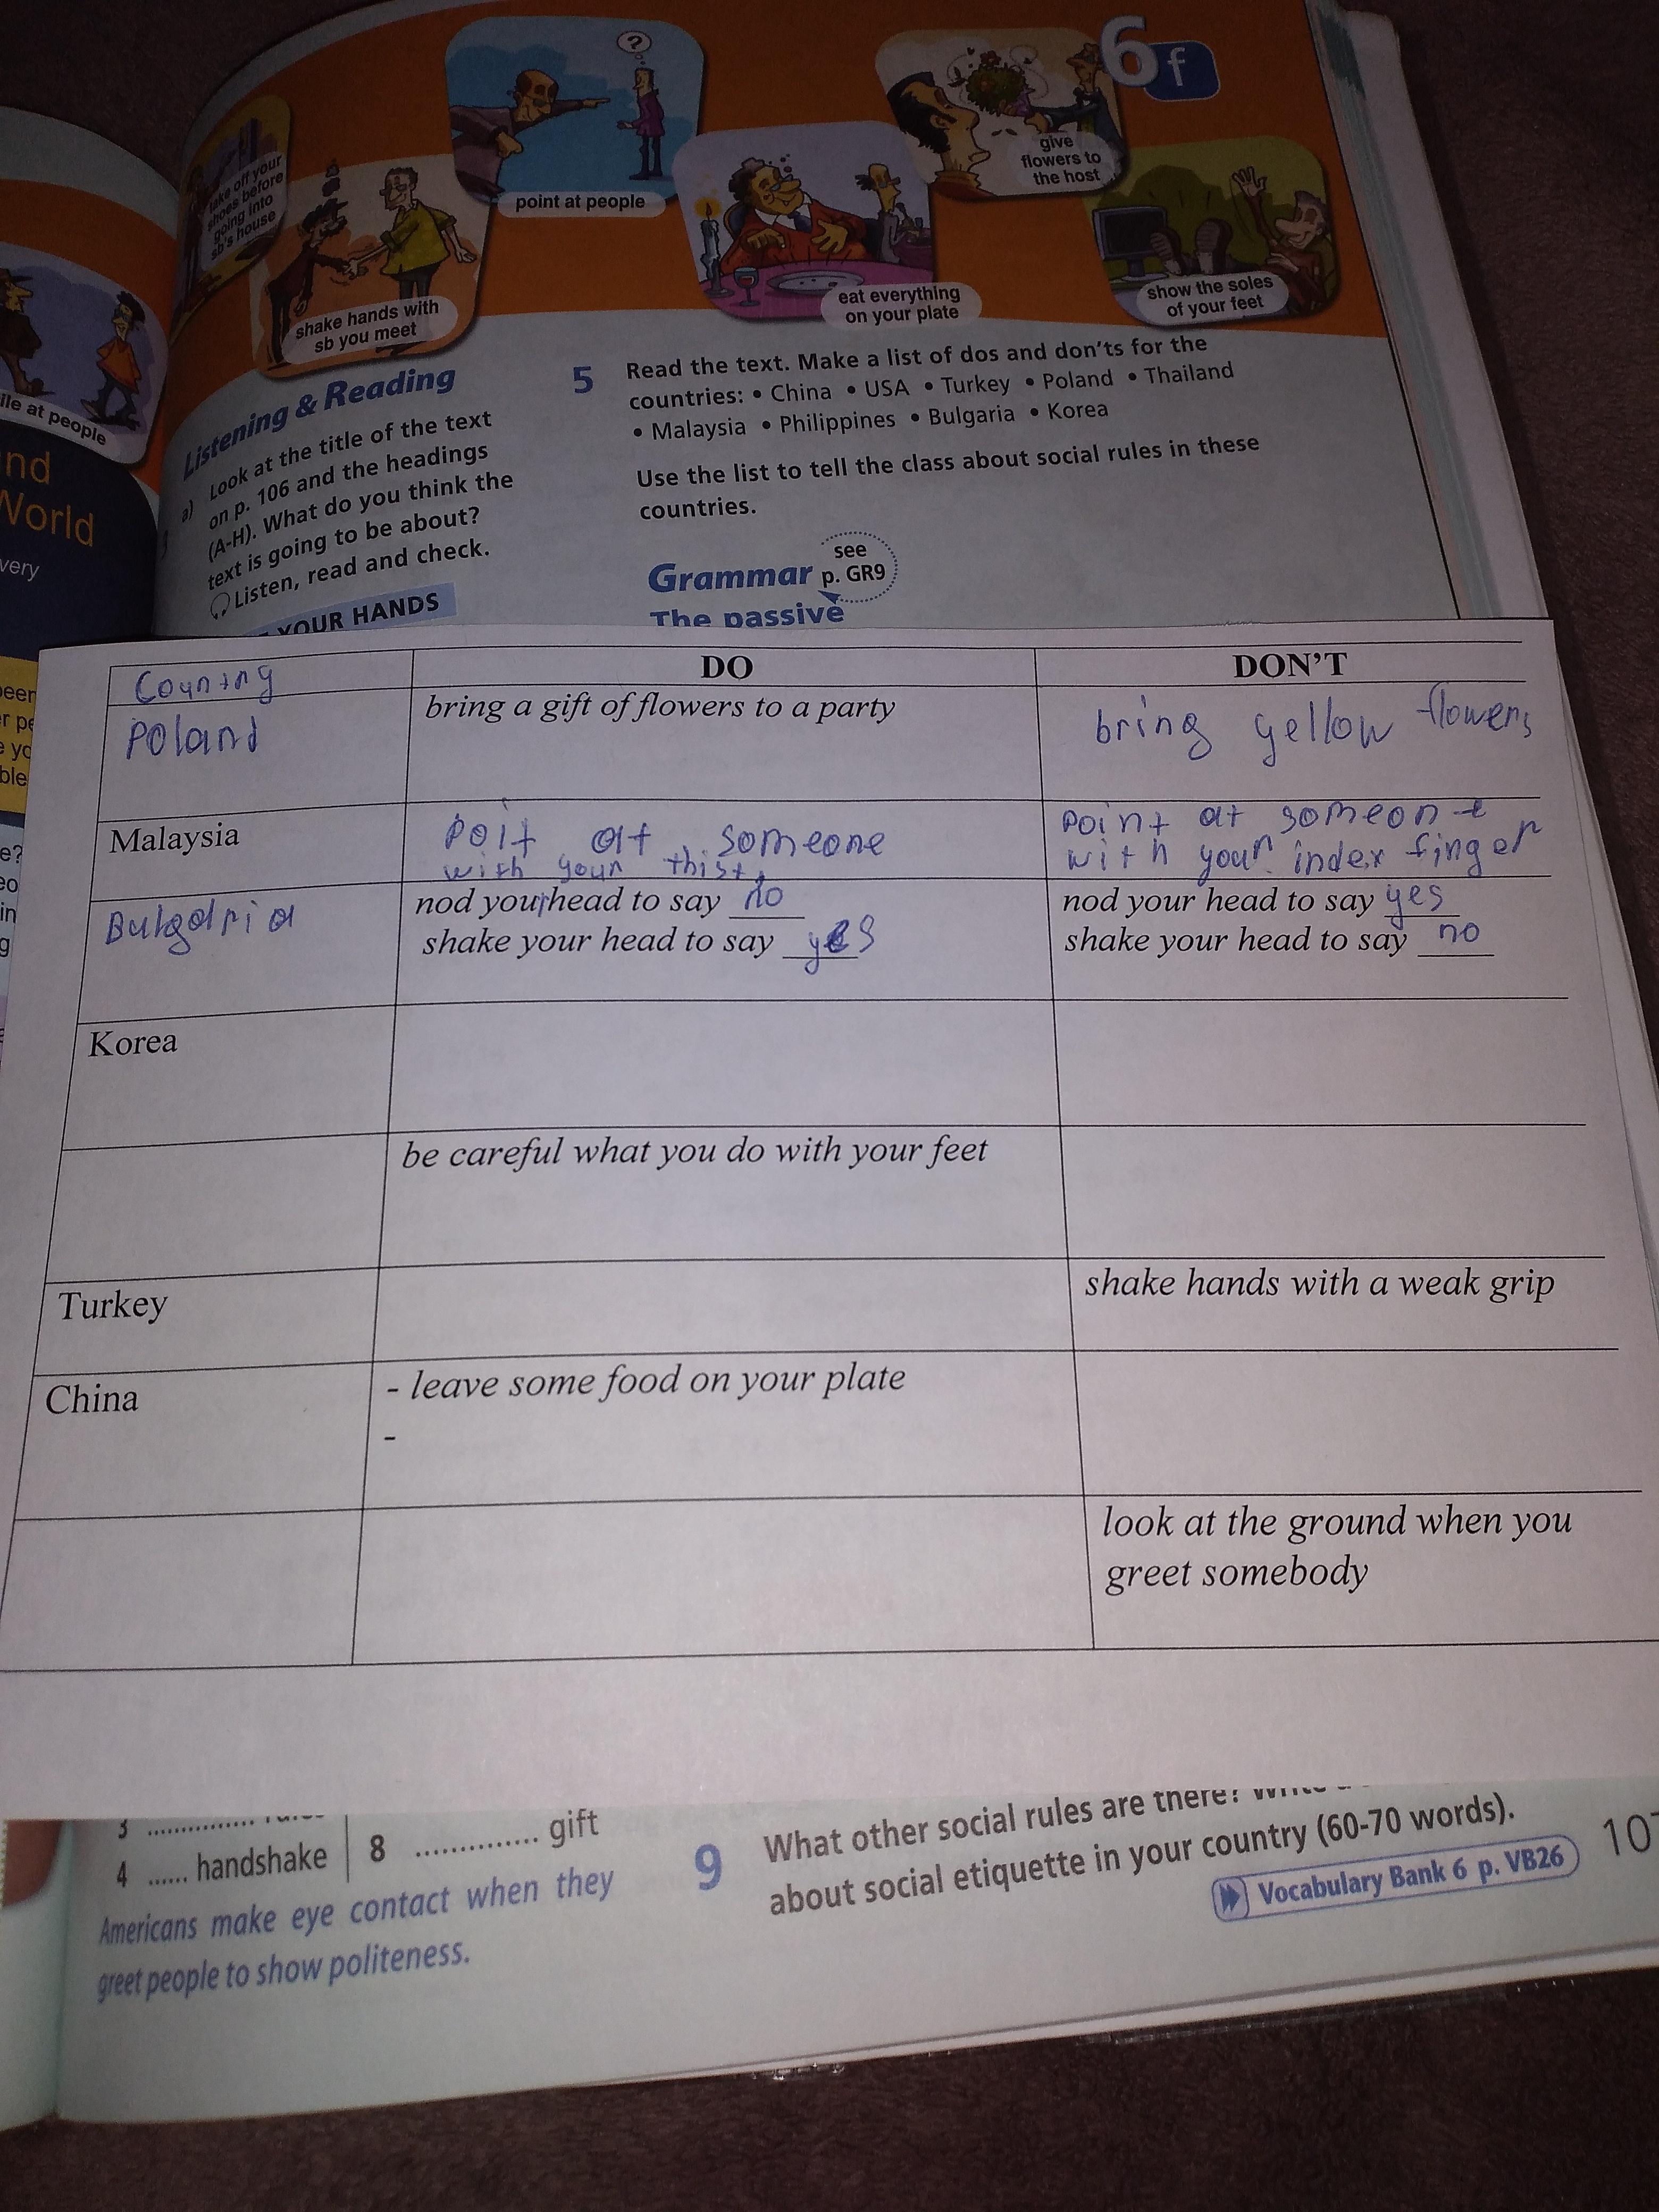 6 f
take off your
shoes before
going into
sb's house
shake hands with
sb you meet
point at people
eat everything
on your plate
give
flowers to
the host
show the soles
of your feet
ile at people
nd
World
very
Listening & Reading
a) Look at the title of the text
on p. 106 and the headings
(A-H). What do you think the
text is going to be about?
Listen, read and check.
YOUR HANDS
5 Read the text. Make a list of dos and don'ts for the
countries: • China • USA • Turkey • Poland • Thailand
• Malaysia • Philippines • Bulgaria • Korea
Use the list to tell the class about social rules in these
countries.
Grammar see p. GR9
The passive
DO DON'T
Poland bring a gift of flowers to a party bring yellow flowers
Malaysia poit at someone point at someone
with your thist. with your index finger
Bulgaria nod your head to say no nod your head to say yes
shake your head to say yes shake your head to say no
Korea
be careful what you do with your feet
Turkey shake hands with a weak grip
China - leave some food on your plate
-
look at the ground when you
greet somebody
3 ..............
4 ...... handshake 8 ............. gift
Americans make eye contact when they
greet people to show politeness.
9 What other social rules are there?
about social etiquette in your country (60-70 words).
Vocabulary Bank 6 p. VB26
10